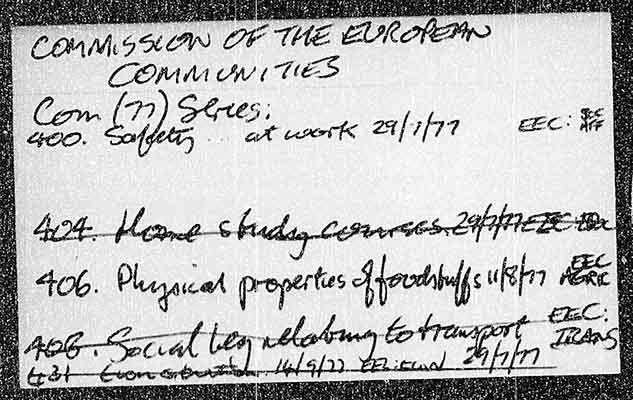 COMMISSION OF THE EUROPEAN
COMMUNITIES
Com (77) Series:
400. Safety ... at work 29/7/77 EEC: SOC AFF
404. Home study courses 29/7/77 EEC
406. Physical properties of foodstuffs 11/8/77 EEC AGRIC
408. Social leg relating to transport 29/7/77 EEC: TRANS
431 14/9/77 EEC: